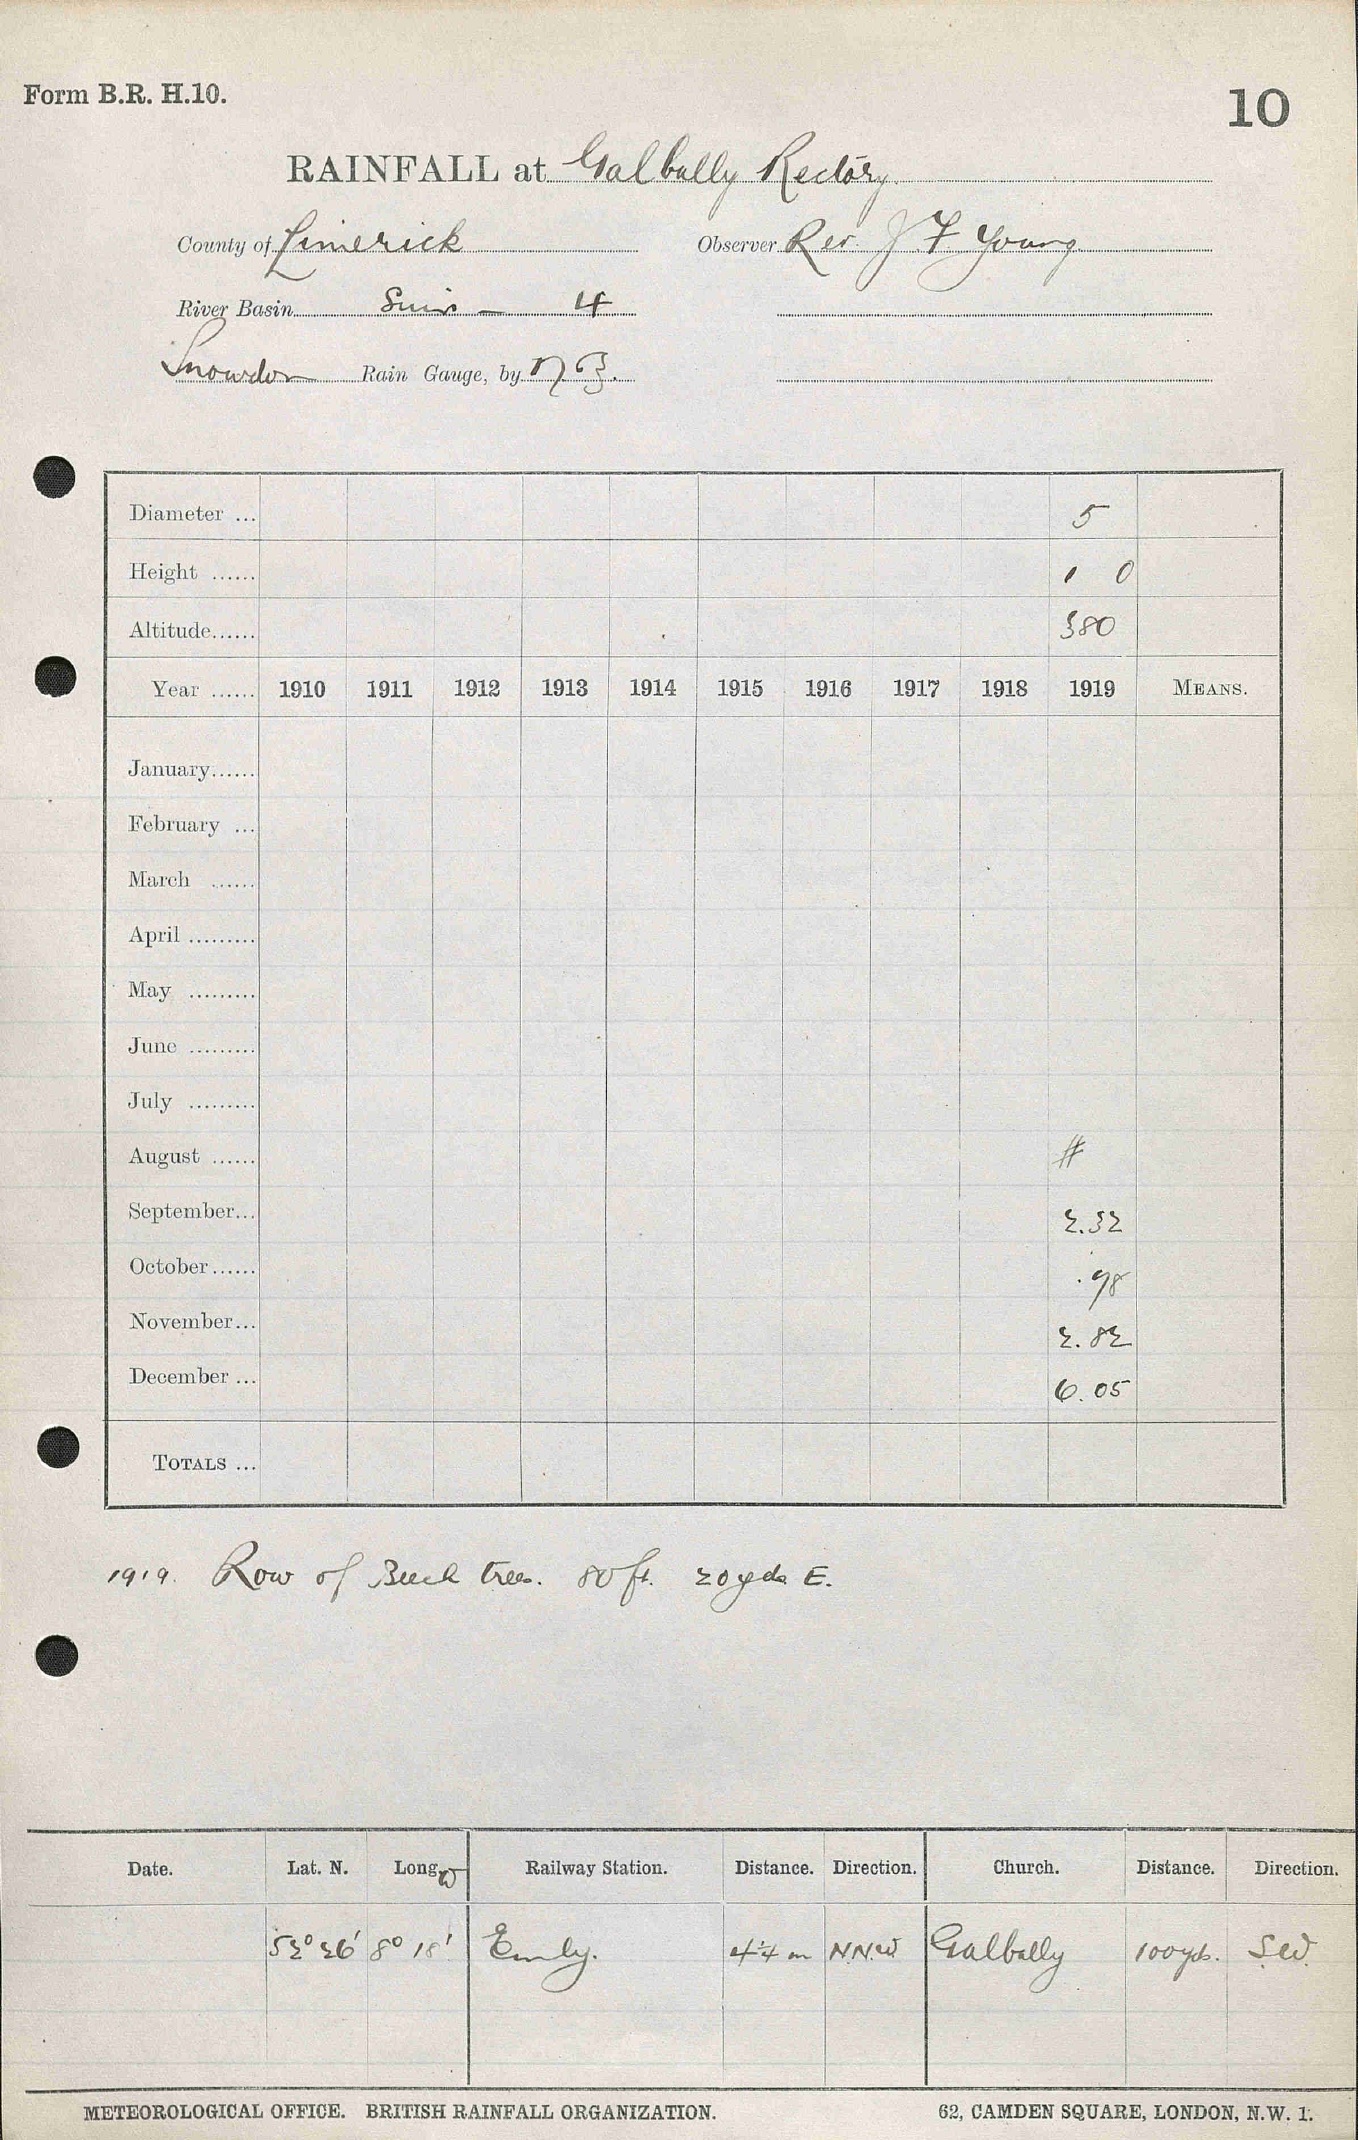 Form B.R. H.10.
10
RAINFALL at Galbally Rectory.
County of Limerick Observer Rev. J F Young
River Basin Suir — 4
Snowdon Rain Gauge, by N Z.
Diameter ... 5
Height ...... 1 0
Altitude...... 380
Year ...... 1910 1911 1912 1913 1914 1915 1916 1917 1918 1919 MEANS.
January......
February ...
March ......
April .........
May .........
June .........
July .........
August ...... #
September... 2.32
October...... .98
November... 2.82
December ... 6.05
TOTALS ...
1919. Row of Beech trees. 80 ft. 20 yds E.
Date. Lat. N. Long W Railway Station. Distance. Direction. Church. Distance. Direction.
52° 26' 8° 18' Emly. 4¼ m N.N.W Galbally 100 yds. S.W.
METEOROLOGICAL OFFICE. BRITISH RAINFALL ORGANIZATION. 62, CAMDEN SQUARE, LONDON, N.W. 1.